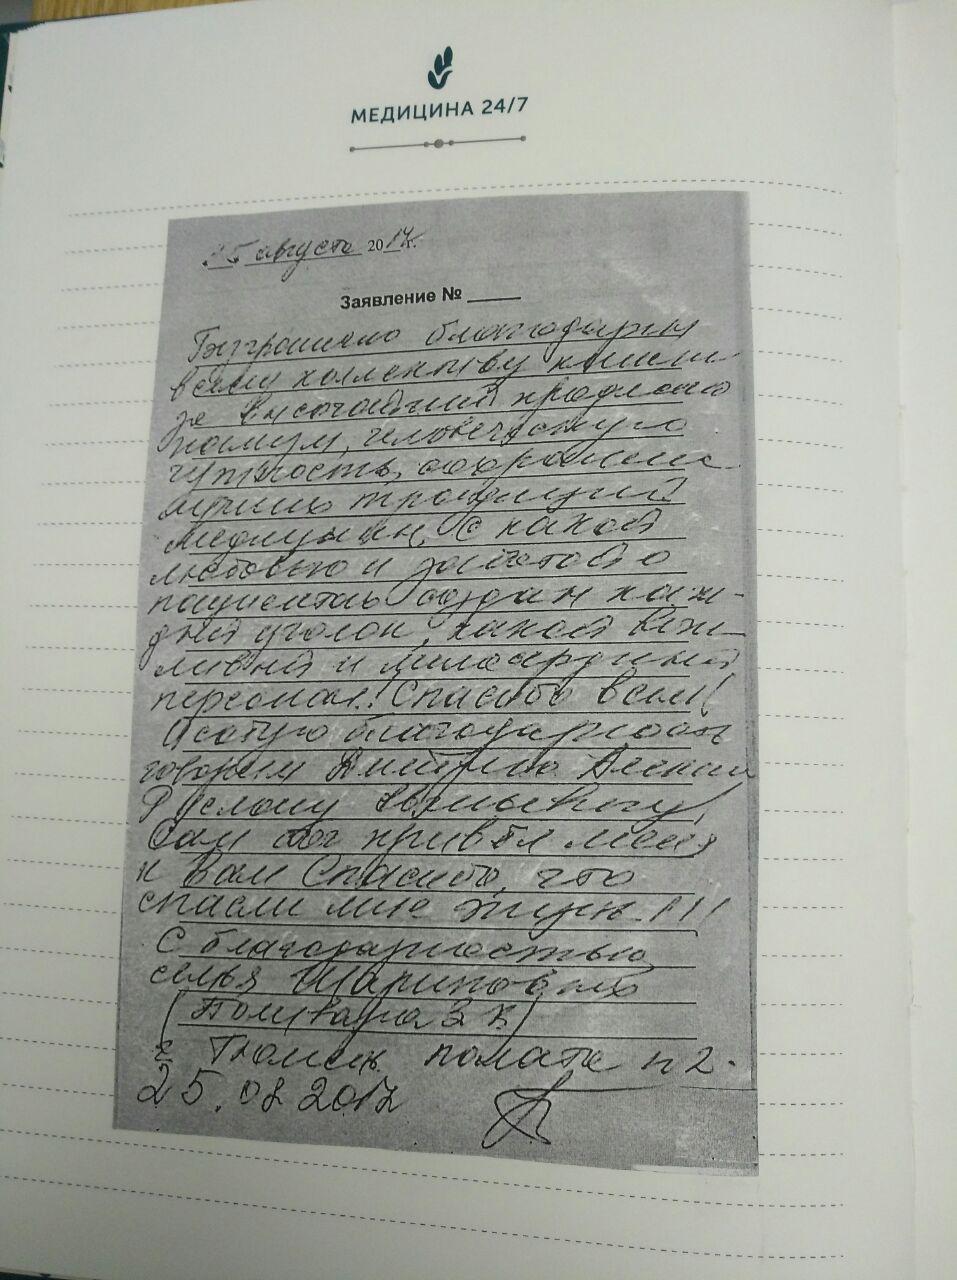 МЕДИЦИНА 24/7
25 августа 2017г.
Заявление №
Безгранично благодарны
всему коллективу клиники
за высочайший професио
нализм, человеческую
чуткость, сохранение
лучших традиций
медицины. С какой
любовью и заботой о
пациентах создан каж-
дый уголок, какой веж-
ливый и милосердный
персонал! Спасибо всем!
Особую благодарность
говорим Дмитрию
Руслану
Сам бог привёл меня
к Вам Спасибо, что
спасли мне жизнь!!!
С благодарностью
семья
(Поливара З К)
г Тюмень палата п 2.
25.08 2017